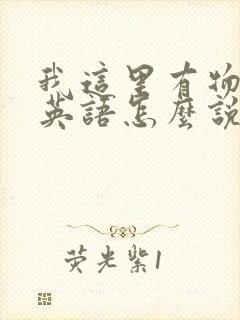 我這里有物
英語怎麼說
荧光紫1